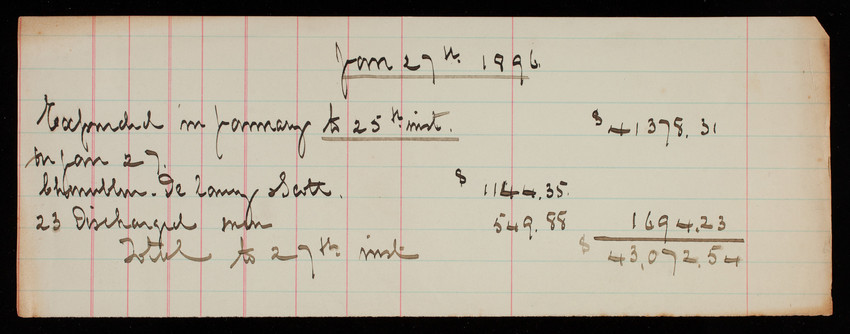 Jan 27th. 1896.
Expended in January to 25th inst. $ 41378.31
On Jan 27.
Chamblin. Delaney & Scott. $ 1144.35
23 Discharged men 549.88 1694.23
Total to 27th inst $ 43,072.54